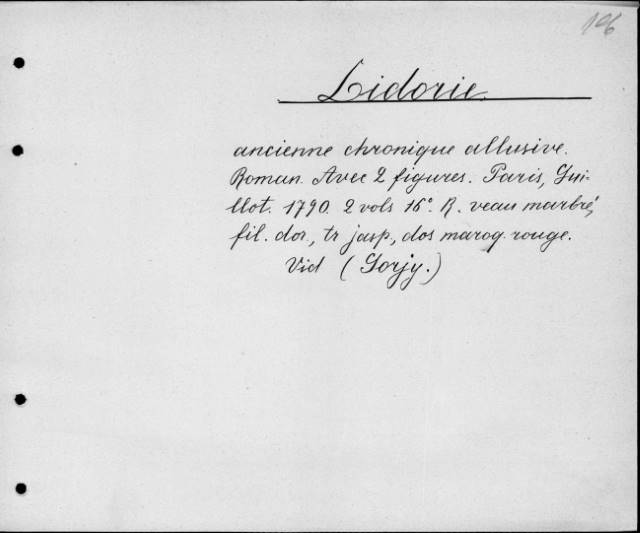 196
Lidorie.
ancienne chronique allusive.
Roman. Avec 2 figures. Paris, Gui-
llot. 1790. 2 vols 16°. R. veau marbré,
fil. dor., tr. jasp., dos maroq. rouge.
Vid (Gorjy.)